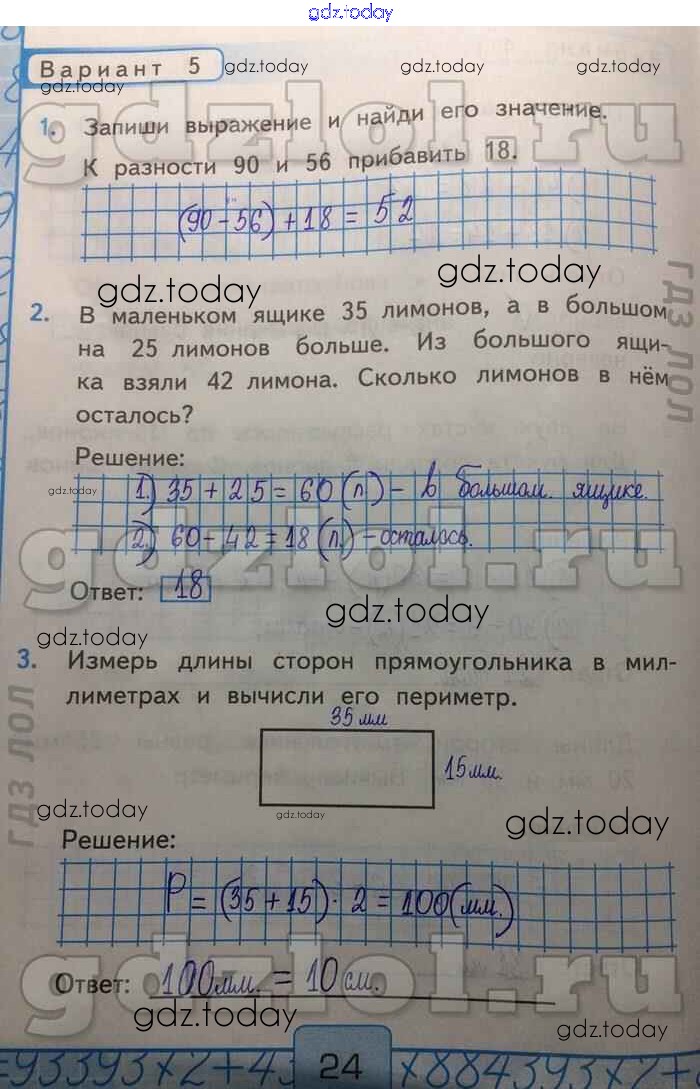 gdz.today
Вариант 5
gdz.today gdz.today gdz.today
gdz.today
gdzlol.ru
1. Запиши выражение и найди его значение.
К разности 90 и 56 прибавить 18.
gdz.today
(90-56)+18 = 52
gdz.today
gdz.today
гдз лол
2. В маленьком ящике 35 лимонов, а в большом
на 25 лимонов больше. Из большого ящи-
ка взяли 42 лимона. Сколько лимонов в нём
осталось?
Решение:
gdz.today
1.) 35+25=60(л.) – в большом ящике.
2.) 60-42=18(л.) – осталось.
gdzlol.ru
Ответ: 18
gdz.today
gdz.today
3. Измерь длины сторон прямоугольника в мил-
лиметрах и вычисли его периметр.
35 мм
15 мм.
гдз лол
gdz.today
gdz.today
gdz.today
Решение:
P = (35+15) · 2 = 100(мм.)
gdzlol.ru
Ответ: 100 мм. = 10 см.
gdz.today
gdz.today
=93393×2+43
24
×884393×2+